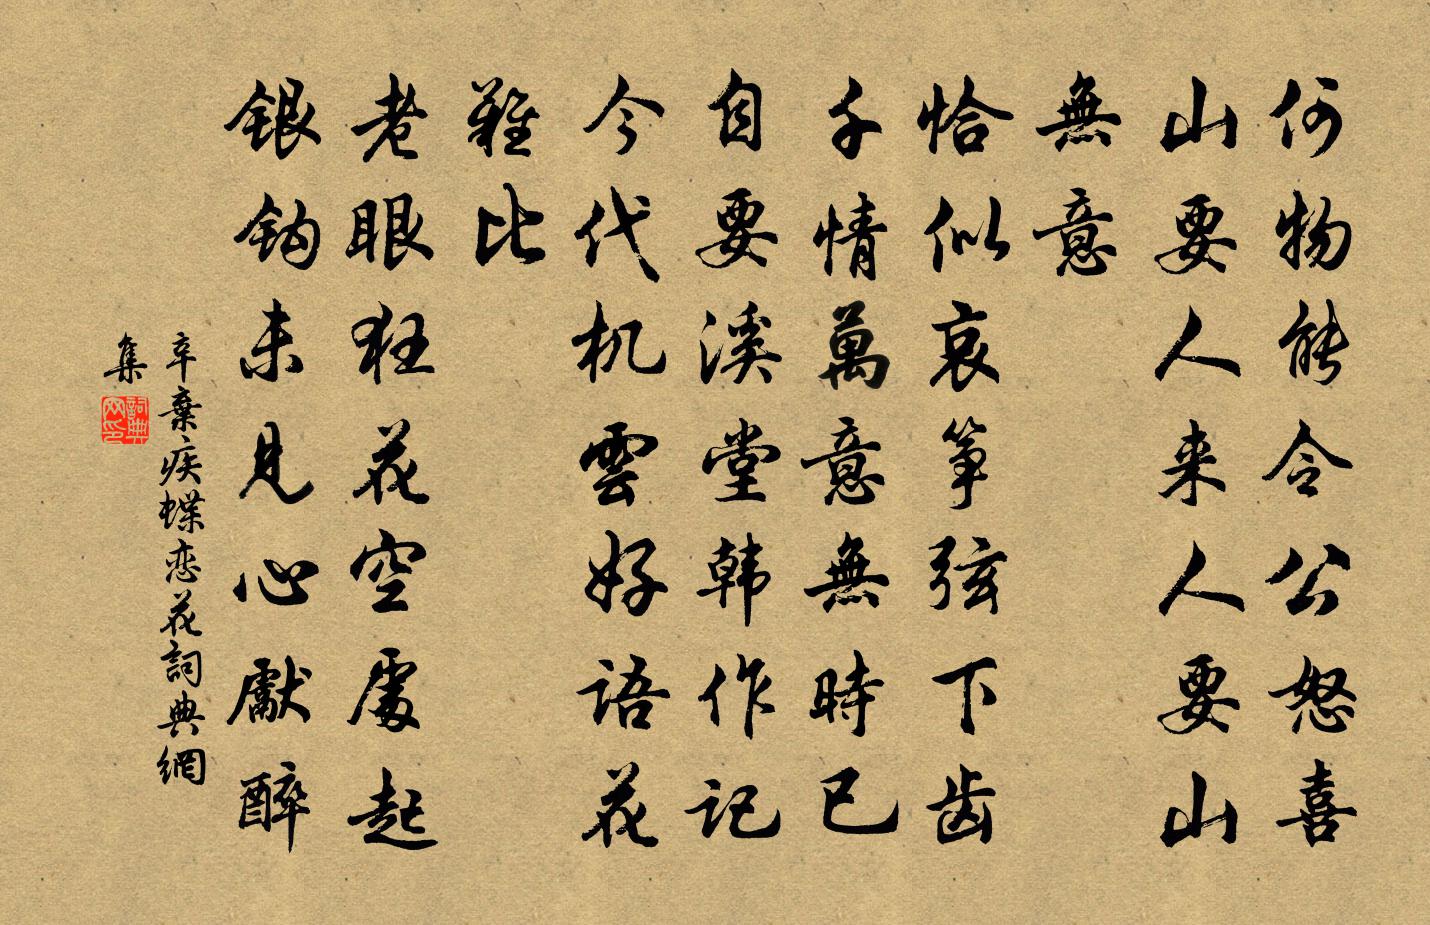 何物能令公怒喜
山要人来人要山
無意
恰似哀筝弦下齿
千情萬意無時已
自要溪堂韩作记
今代机雲好語花
難比
老眼狂花空處起
銀钩未見心獻醉
辛棄疾蝶恋花詞典網
集
詞典网印